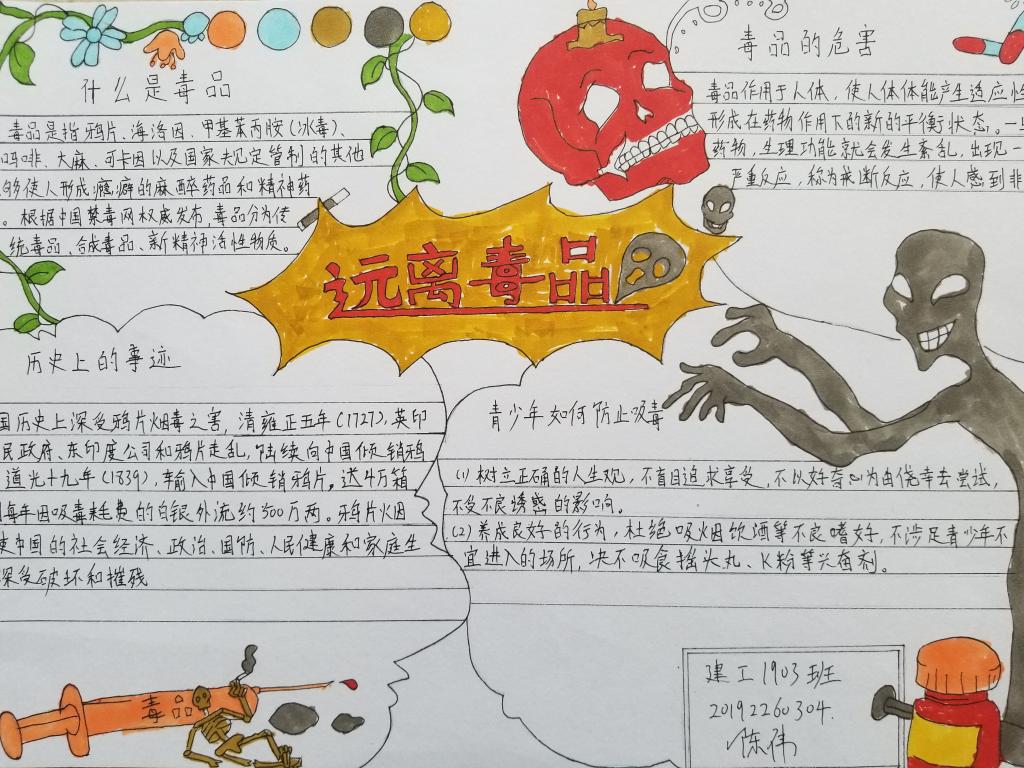 什么是毒品
毒品是指鸦片、海洛因、甲基苯丙胺(冰毒)、
吗啡、大麻、可卡因以及国家规定管制的其他
够使人形成瘾癖的麻醉药品和精神药
。根据中国禁毒网权威发布,毒品分为传
统毒品、合成毒品、新精神活性物质。
毒品的危害
毒品作用于人体,使人体体能产生适应性
形成在药物作用下的新的平衡状态。一旦
药物,生理功能就会发生紊乱,出现一
严重反应,称为戒断反应,使人感到非
远离毒品
历史上的事迹
国历史上深受鸦片烟毒之害,清雍正五年(1727),英印
民政府、东印度公司和鸦片走乱,陆续向中国倾销鸦
道光十九年(1839),输入中国倾销鸦片。送4万箱
每年因吸毒耗费的白银外流约500万两。鸦片烟
使中国的社会经济、政治、国防、人民健康和家庭生
深受破坏和摧残
青少年如何防止吸毒
(1)树立正确的人生观,不盲目追求享受,不以好奇心为由侥幸去尝试,
不受不良诱惑的影响。
(2)养成良好的行为,杜绝吸烟饮酒等不良嗜好,不涉足青少年不
宜进入的场所,决不吸食摇头丸、K粉等兴奋剂。
毒品
建工1903班
20192260304.
陈伟